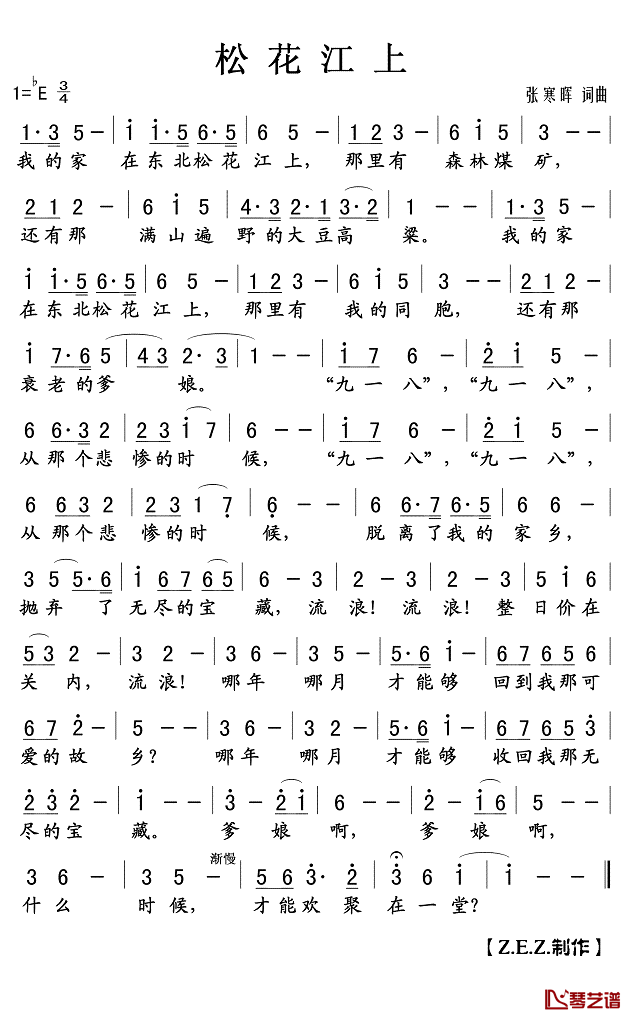 松花江上
1=♭E 3/4 张寒晖 词曲
1·3 5- | i i·5 6·5 | 6 5 - | 1 2 3 - | 6 i 5 | 3 - - |
我的家 在东北松花江上, 那里有 森林煤矿,
2 1 2 - | 6 i 5 | 4·3 2·1 3·2 | 1 - - | 1·3 5 - |
还有那 满山遍野的大豆高粱。 我的家
i i·5 6·5 | 6 5 - | 1 2 3 - | 6 i 5 | 3 - - | 2 1 2 - |
在东北松花江上, 那里有 我的同胞, 还有那
i 7·6 5 | 4 3 2·3 | 1 - - | i 7 6 - | 2 i 5 - |
衰老的爹娘。 “九一八”, “九一八”,
6 6·3 2 | 2 3 i 7 | 6 - - | i 7 6 - | 2 i 5 - |
从那个悲惨的时候, “九一八”, “九一八”,
6 6 3 2 | 2 3 1 7 | 6 - - | 6 6·7 6·5 |
从那个悲惨的时候, 脱离了我的家乡,
3 5 5·6 | i 6 7 6 5 | 6 - 3 | 2 - 3 | 2 - 3 | 5 i 6 |
抛弃了无尽的宝藏, 流浪! 流浪! 整日价在
5 3 2 - | 3 2 - | 3 6 - | 3 2 - | 5·6 i - | 6 7 6 5 6 |
关内, 流浪! 哪年 哪月 才能够 回到我那可
6 7 2 - | 5 - - | 3 6 - | 3 2 - | 5·6 i - | 6 7 6 5 3 |
爱的故乡? 哪年 哪月 才能够 收回我那无
2 3 2 - | i - - | 3 - 2 i | 6 - - | 2 - i 6 | 5 - - |
尽的宝藏。 爹娘啊, 爹娘啊,
渐慢
3 6 - | 3 5 - | 5 6 3· 2 | 3 6 i | i - - ‖
什么时候, 才能欢聚在一堂?
【Z.E.Z.制作】
琴艺谱